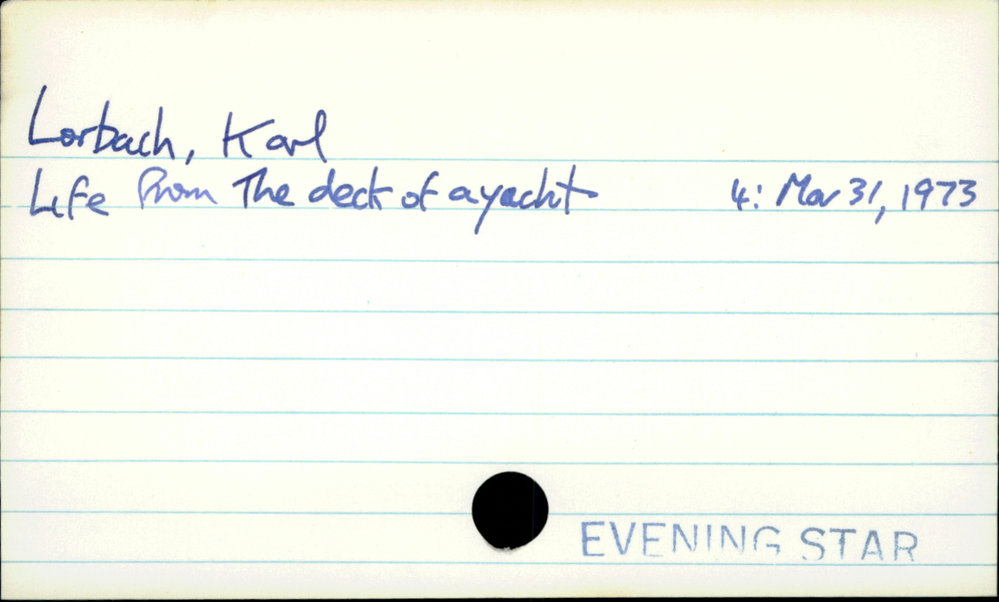 Lorbach, Karl
Life From The deck of a yacht 4: Mar 31, 1973
EVENING STAR